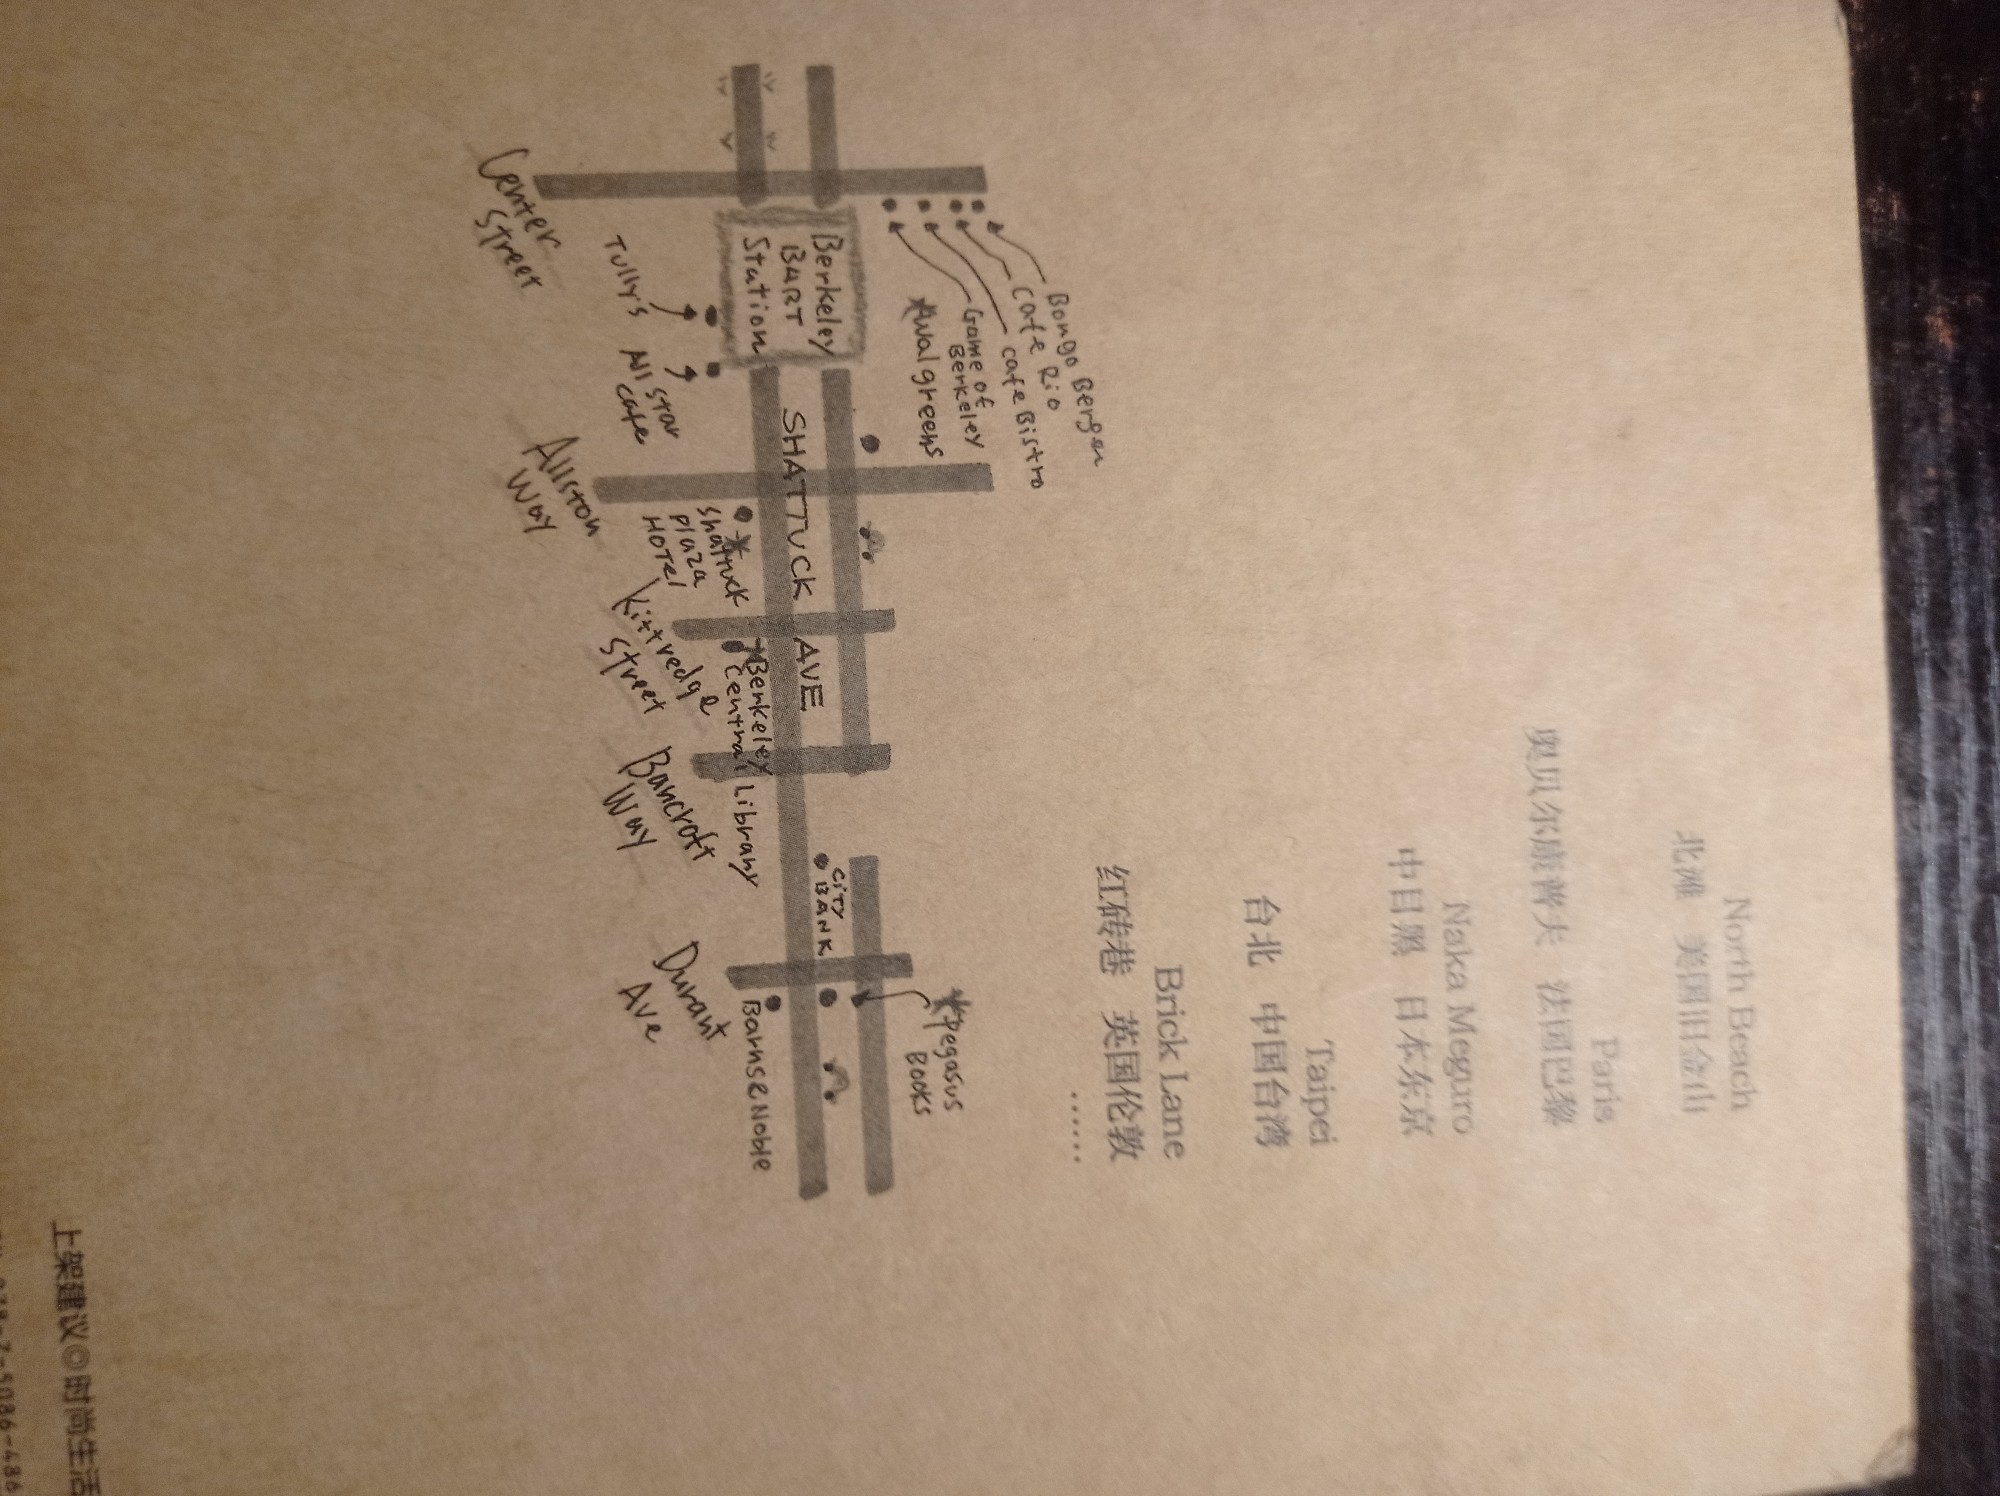 North Beach
北滩 美国旧金山
Paris
奥贝尔康普夫 法国巴黎
Naka Meguro
中目黑 日本东京
Taipei
台北 中国台湾
Brick Lane
红砖巷 英国伦敦
……
Bongo Bergen
Cafe Rio
Cafe Bistro
Game of
Berkeley
Walgreens
Berkeley
BART
Station
SHATTUCK AVE
Center
Street
Tully's
Allston
Way
Shattuck
Plaza
HOTel
Kittredge
Street
Berkeley
Central Library
Bancroft
Way
CITY
BANK
Durant
Ave
Pegasus
BOOKS
Barnse Noble
上架建议◎时尚生活